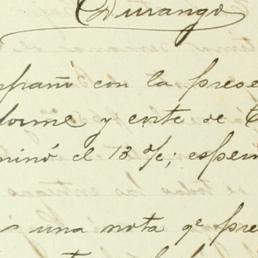 Durango
con la prese
forme y corte de C
minó el 18 %; esper
una nota qe pre